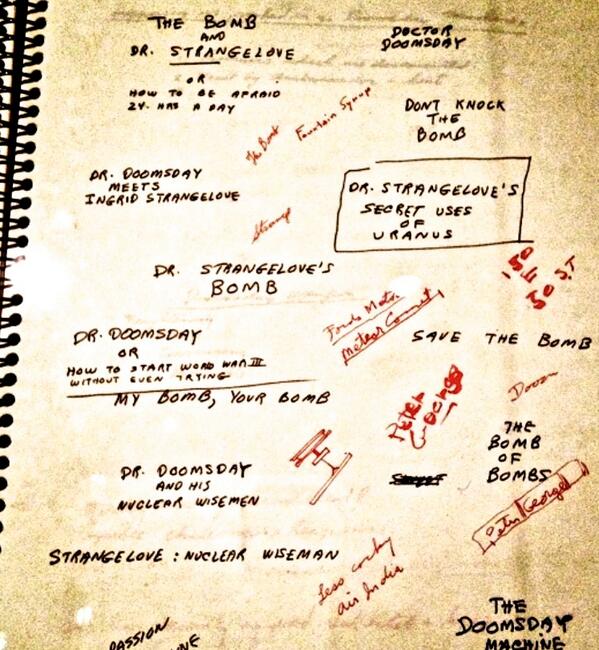 THE BOMB
AND
DR. STRANGELOVE
OR
HOW TO BE AFRAID
24 HRS A DAY
DOCTOR
DOOMSDAY
DONT KNOCK
THE
BOMB
The Bomb
Fountain Syrup
DR. DOOMSDAY
MEETS
INGRID STRANGELOVE
DR. STRANGELOVE'S
SECRET USES
OF
URANUS
DR. STRANGELOVE'S
BOMB
150
E
50 ST
Meteor
DR. DOOMSDAY
OR
HOW TO START WORD WAR III
WITHOUT EVEN TRYING
SAVE THE BOMB
MY BOMB, YOUR BOMB
Peter
George
THE
BOMB
OF
BOMBS
DR. DOOMSDAY
AND HIS
NUCLEAR WISEMEN
Peter George
STRANGELOVE : NUCLEAR WISEMAN
Less cocky
air India
THE
DOOMSDAY
MACHINE
PASSION